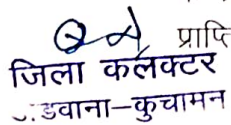 प्राप्ति
जिला कलेक्टर
डवाना–कुचामन